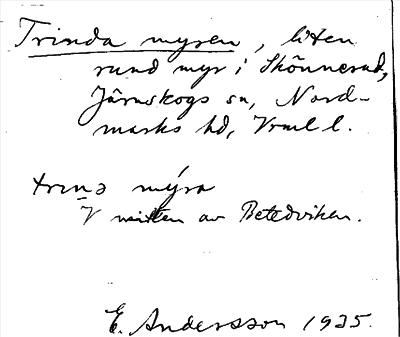 Trinda myren, liten
rund myr i Skönnerud,
Järnskogs sn, Nord-
marks hd, Vrml l.
trinə mýra
I mitten av Betedviken.
E. Andersson 1935.